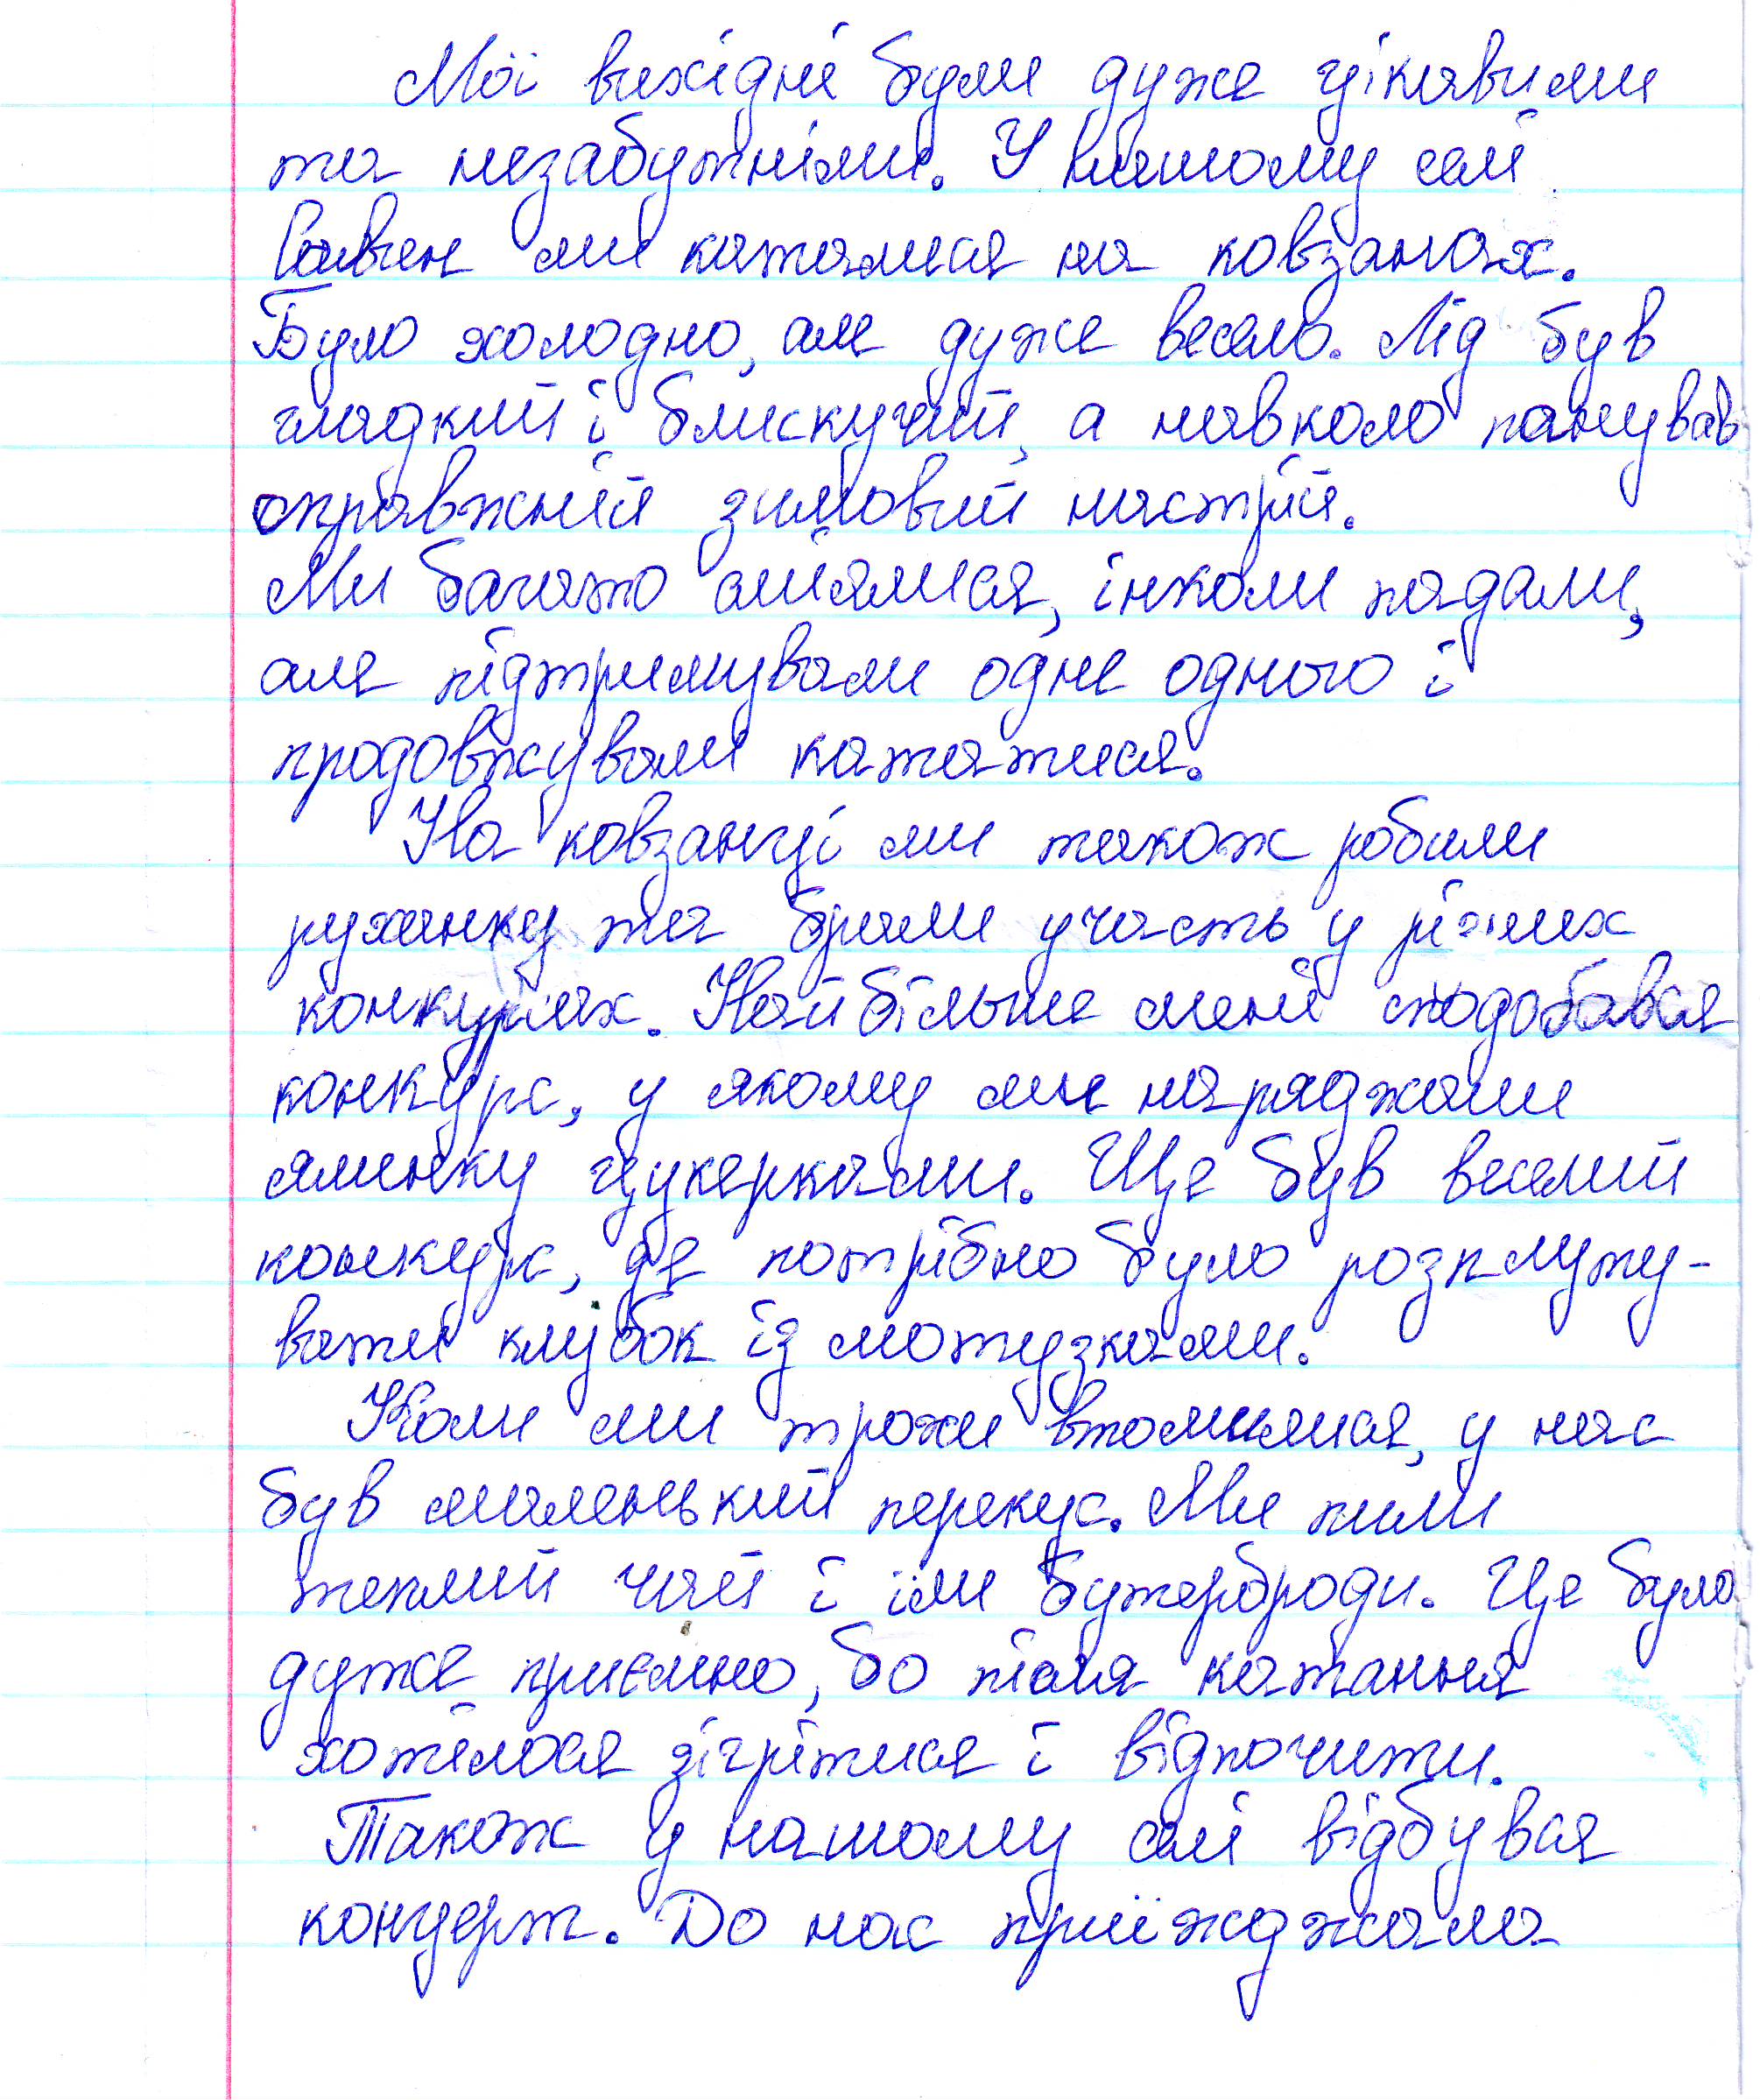 Мої вихідні були дуже цікавими
та незабутніми. У нашому селі
ми каталися на ковзанах.
Було холодно, але дуже весело. Лід був
гладкий і блискучий, а навколо панував
справжній зимовий настрій.
Ми багато сміялися, інколи падали,
але підтримували одне одного і
продовжували кататися.
На ковзанці ми також робили
руханку та брали участь у різних
конкурсах. Найбільше мені сподобався
конкурс, у якому ми наряджали
ялинку цукерками. Ще був веселий
конкурс, де потрібно було розплуту-
вати клубок із мотузками.
Коли ми трохи втомилися, у нас
був маленький перекус. Ми пили
теплий чай і їли бутерброди. Це було
дуже приємно, бо після катання
хотілося зігрітися і відпочити.
Також у нашому селі відбувся
концерт. До нас приїжджала